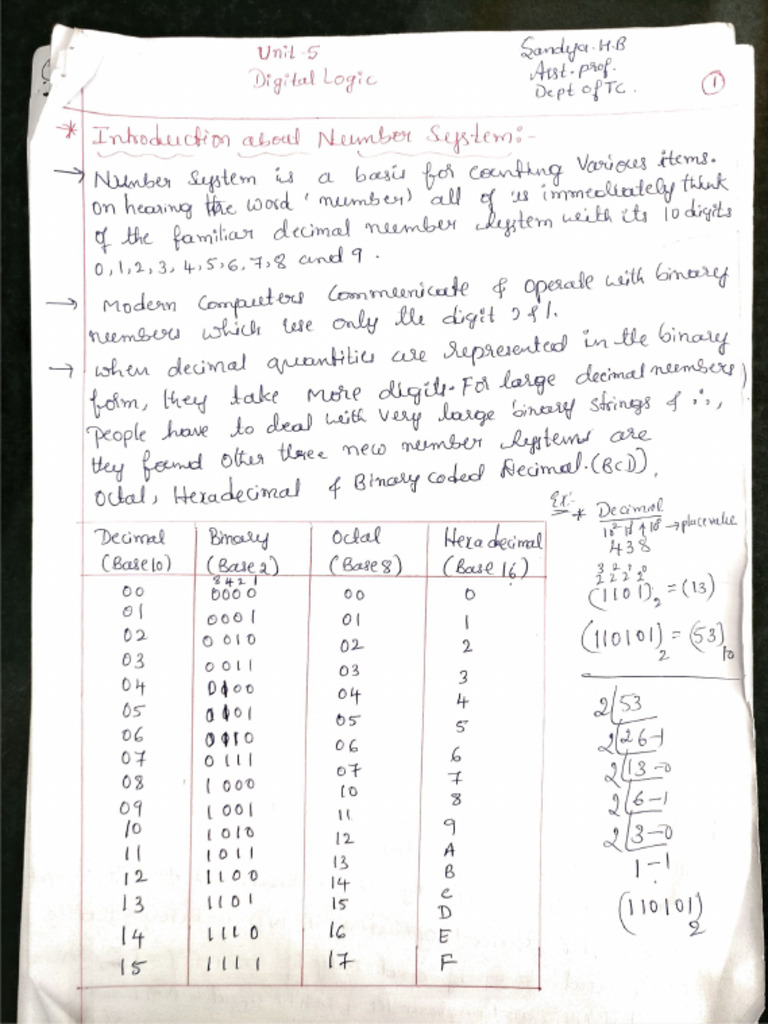 Unit-5
Digital Logic
Sandya.H.B
Asst. prof.
Dept of TC.
1
* Introduction about Number System:-
→ Number System is a basis for counting Various items.
On hearing the word 'number' all of us immediately think
of the familiar decimal number system with its 10 digits
0,1,2,3,4,5,6,7,8 and 9.
→ Modern Computers Communicate & operate with binary
numbers which use only the digit 0 & 1.
→ when decimal quantities are represented in the binary
form, they take More digits. For large decimal numbers
people have to deal with very large binary strings & ∴,
they found Other three new number systems are
Octal, Hexadecimal & Binary coded Decimal.(BCD).
Decimal Binary Octal Hexadecimal
(Base10) (Base 2) (Base 8) (Base 16)
8 4 2 1
00 0000 00 0
01 0001 01 1
02 0010 02 2
03 0011 03 3
04 0100 04 4
05 0101 05 5
06 0110 06 6
07 0111 07 7
08 1000 10 8
09 1001 11 9
10 1010 12 A
11 1011 13 B
12 1100 14 C
13 1101 15 D
14 1110 16 E
15 1111 17 F
Ex:- * Decimal
→ place value
438
3 2 1 0
2 2 2 2
(1101)2 = (13)
(110101)2 = (53)10
2 53
2 26-1
2 13-0
2 6-1
2 3-0
1-1
(110101)2